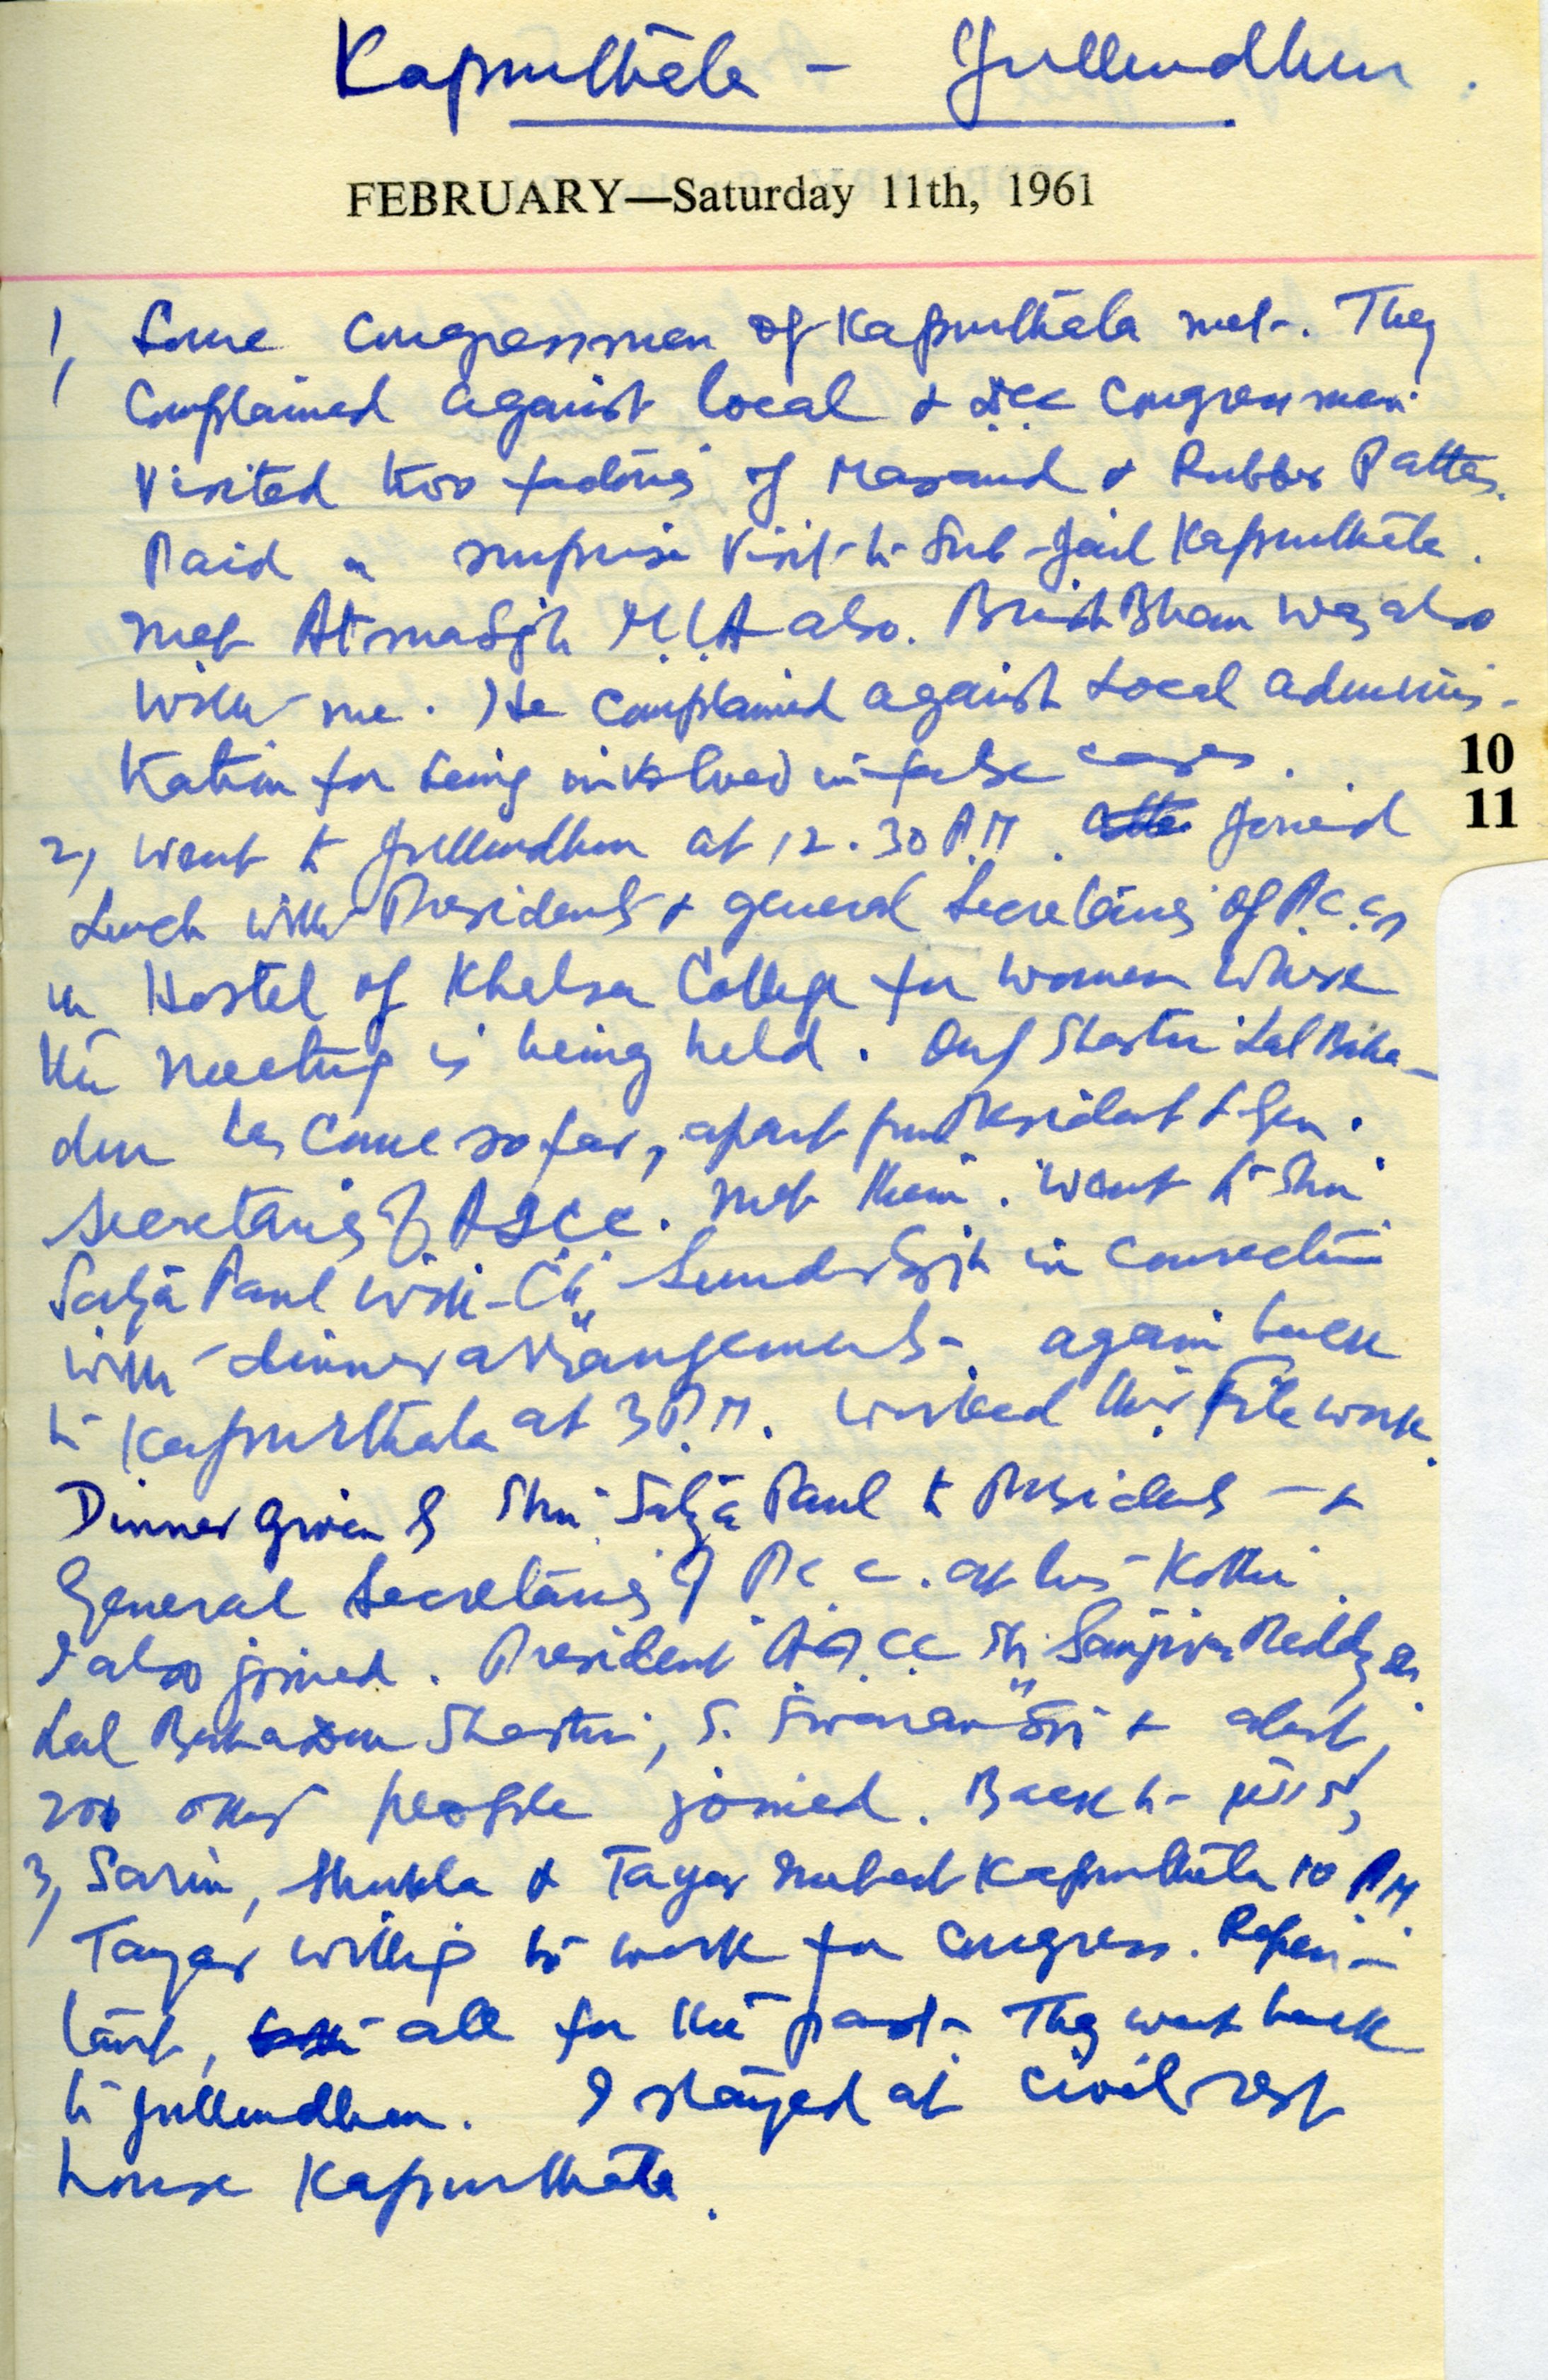 Kapurthala - Jullundhur.
FEBRUARY—Saturday 11th, 1961
1, Some Congressmen of Kapurthala met. They
Complained against local & DCC Congressmen.
Visited two factories of & Rubber
Paid a surprise visit to Sub-Jail Kapurthala.
met Atma Sgh M.L.A also. Brish Bhan was also
with me. He complained against Local adminis-
tration for being involved in false cases.
10
11
2, Went to Jullundhur at 12.30 P.M. Joined
Lunch with Presidents & general Secretaries of P.C.Cs
in Hostel of Khalsa College for Women Where
the meeting is being held. Only Shastri Lal Baha-
dur has come so far, apart from President & Gen.
Secretaries of AICC. met them. Went to Shri
Satya Paul with Ch. Sunder Sgh in connection
with dinner arrangements. again back
to Kapurthala at 3 P.M. Worked their File work.
Dinner given by Shri Satya Paul to Presidents &
General Secretaries of P.C.C. at his Kothi.
I also joined. President A.I.C.C Sh. Sanjiva Reddy
Lal Bahadur Shastri, S. Swaran & about
200 other people joined. Back to
3, Sarin, Shukla & Tayar met at Kapurthala 10 P.M.
Tayar willing to work for Congress. Repen-
tant, all for the past. They went back
to Jullundhur. I stayed at Civil rest
house Kapurthala.